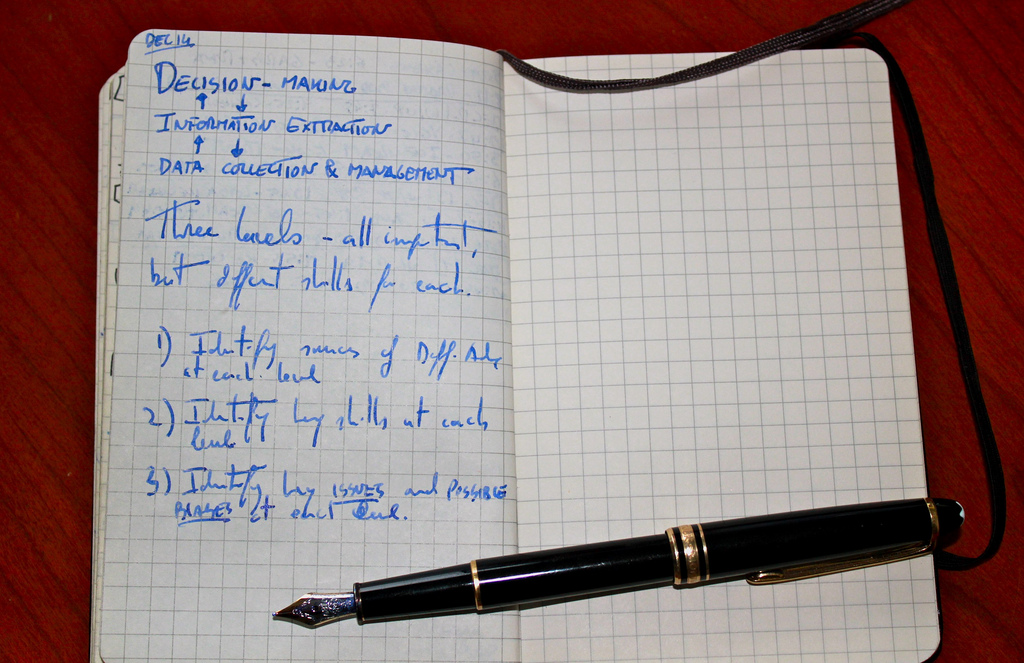 DEC 14
DECISION-MAKING
↑ ↓
INFORMATION EXTRACTION
↑ ↓
DATA COLLECTION & MANAGEMENT
Three levels - all important,
but different skills for each.
1) Identify sources of Diff. Adv
at each level
2) Identify key skills at each
level
3) Identify key ISSUES and POSSIBLE
BIASES at each level.